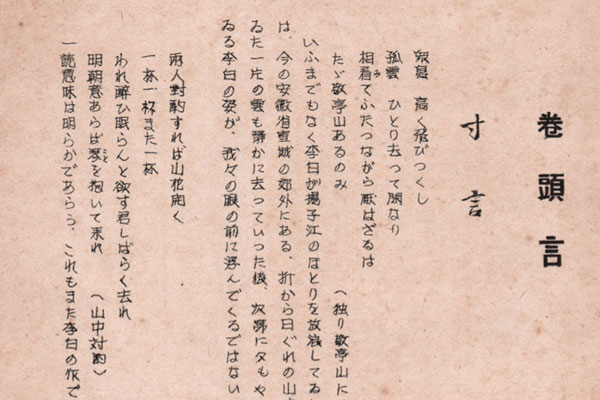 巻頭言
寸言
衆鳥 高く飛びつくし
孤雲 ひとり去って閑なり
相看てふたつながら厭はざるは
たゞ敬亭山あるのみ （独り敬亭山に
いふまでもなく李白が揚子江のほとりを放浪してゐ
は、今の安徽省宣城の郊外にある。折から日ぐれの山
ゐた一片の雲も静かに去っていった後、次第に夕もや
ゐる李白の姿が、我々の眼の前に浮んでくるではない
両人對酌すれば山花開く
一杯一杯また一杯
われ酔ひ眠らんと欲す君しばらく去れ
明朝意あらば琴を抱いて来れ （山中対酌）
一読意味は明らかであらう。これもまた李白の作で